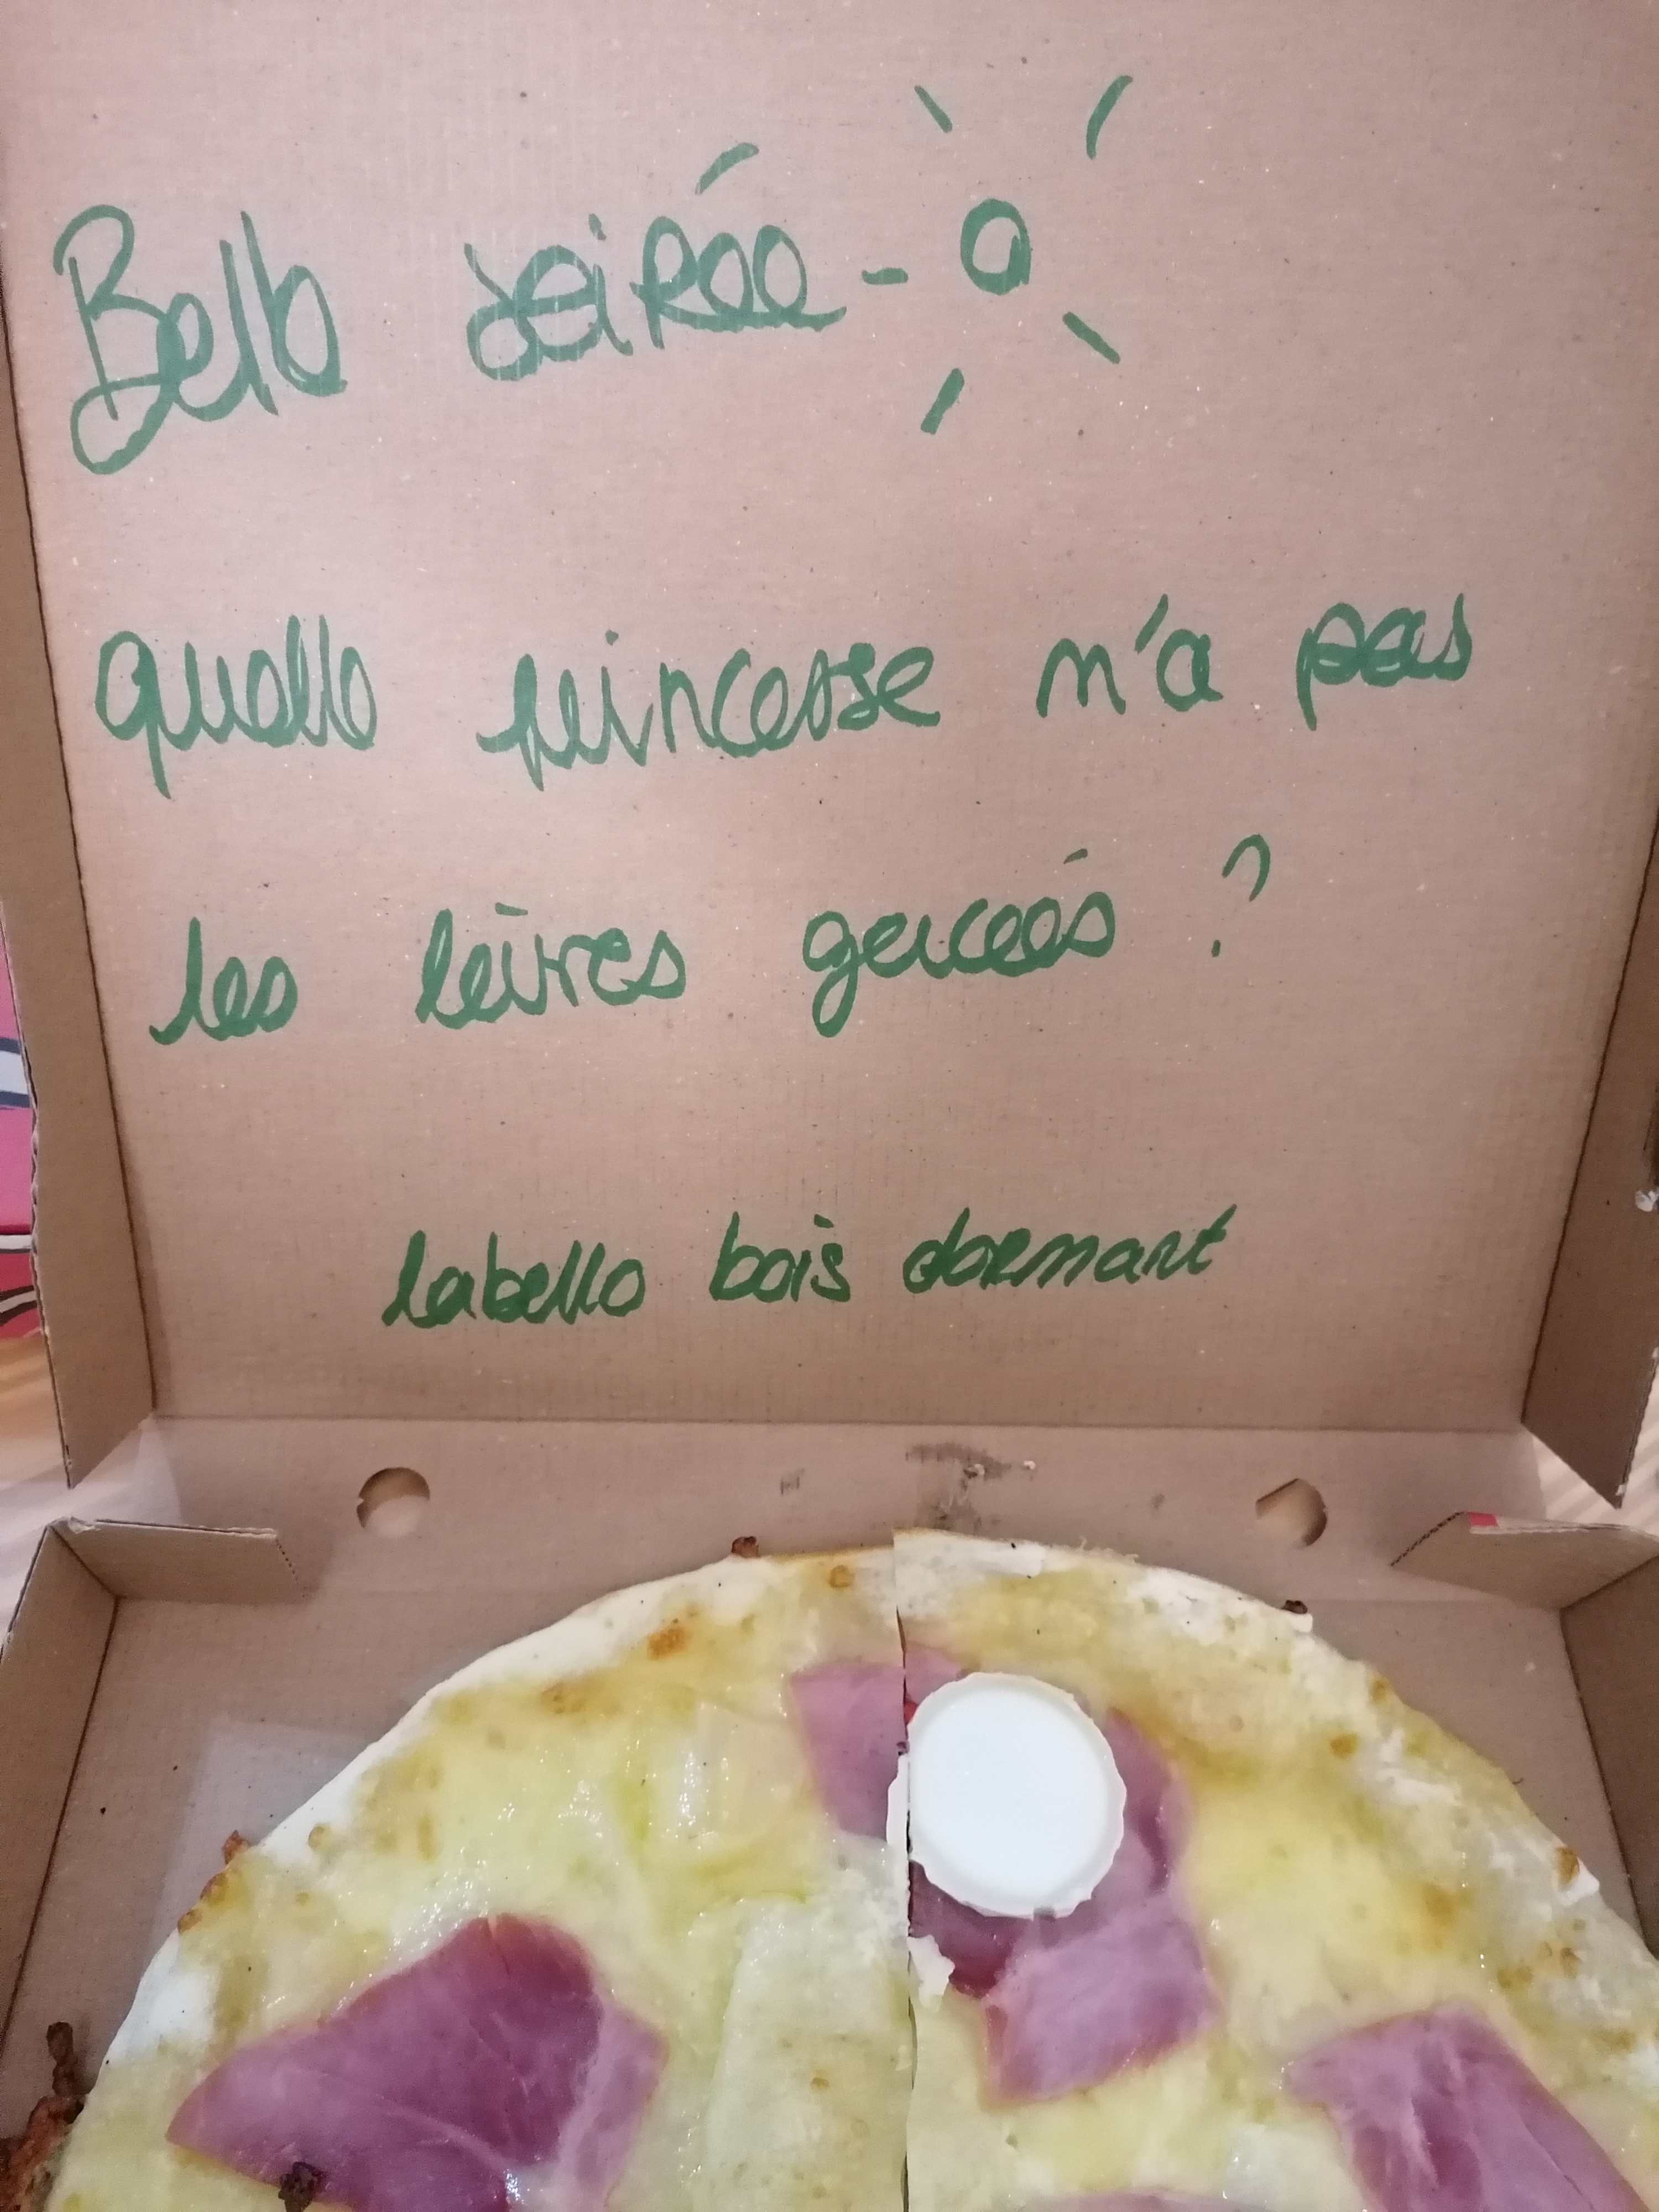 Belle soirée
quelle princesse n'a pas
les lèvres gercées ?
labello bois dormant